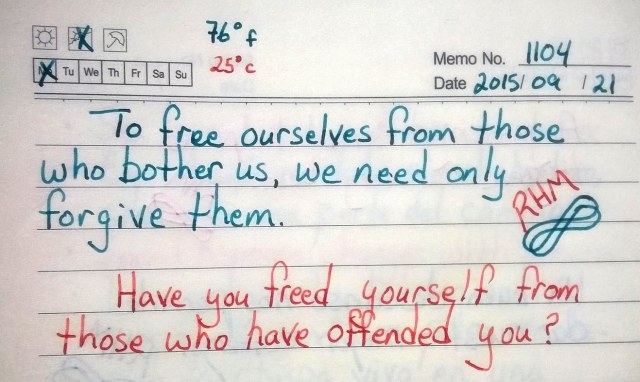 76°f
25°c
Memo No. 1104
Tu We Th Fr Sa Su
Date 2015/09/21
To free ourselves from those
who bother us, we need only
forgive them.
RHM
Have you freed yourself from
those who have offended you?